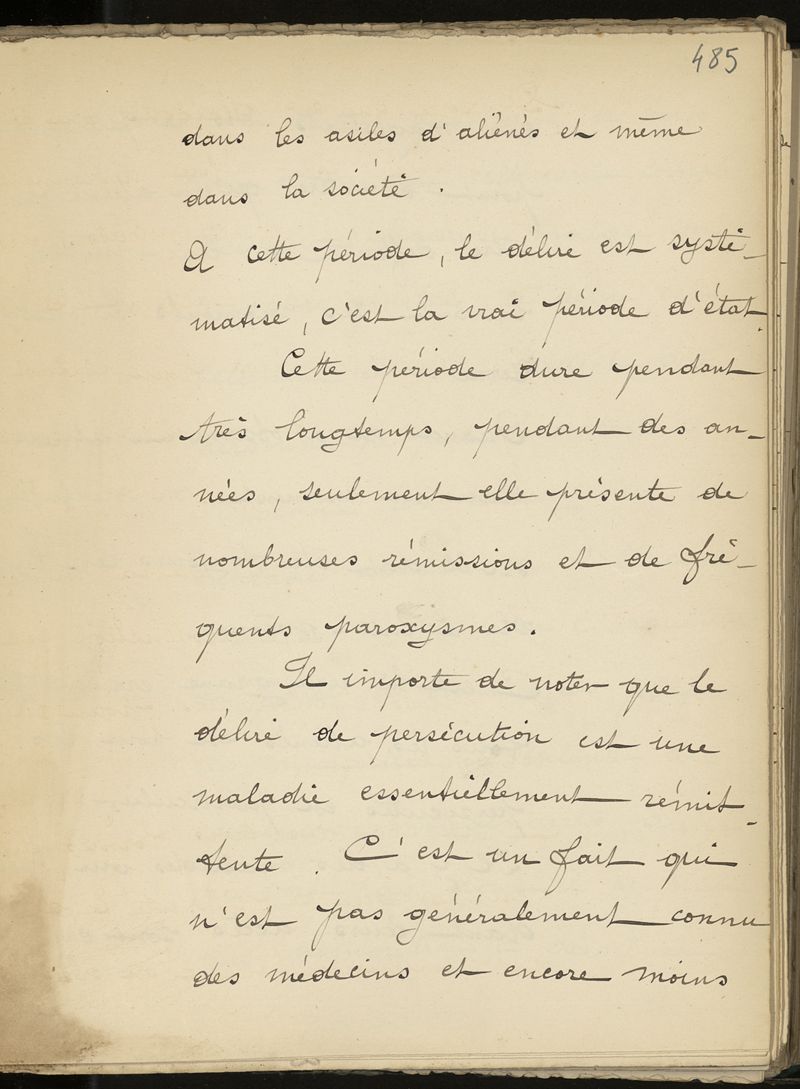 485
dans les asiles d'aliénés et même
dans la société.
A cette période, le délire est systé-
matisé, c'est la vrai période d'état.
Cette période dure pendant
très longtemps, pendant des an-
nées, seulement elle présente de
nombreuses rémissions et de fré-
quents paroxysmes.
Il importe de noter que le
délire de persécution est une
maladie essentiellement rémit-
tente. C'est un fait qui
n'est pas généralement connu
des médecins et encore moins